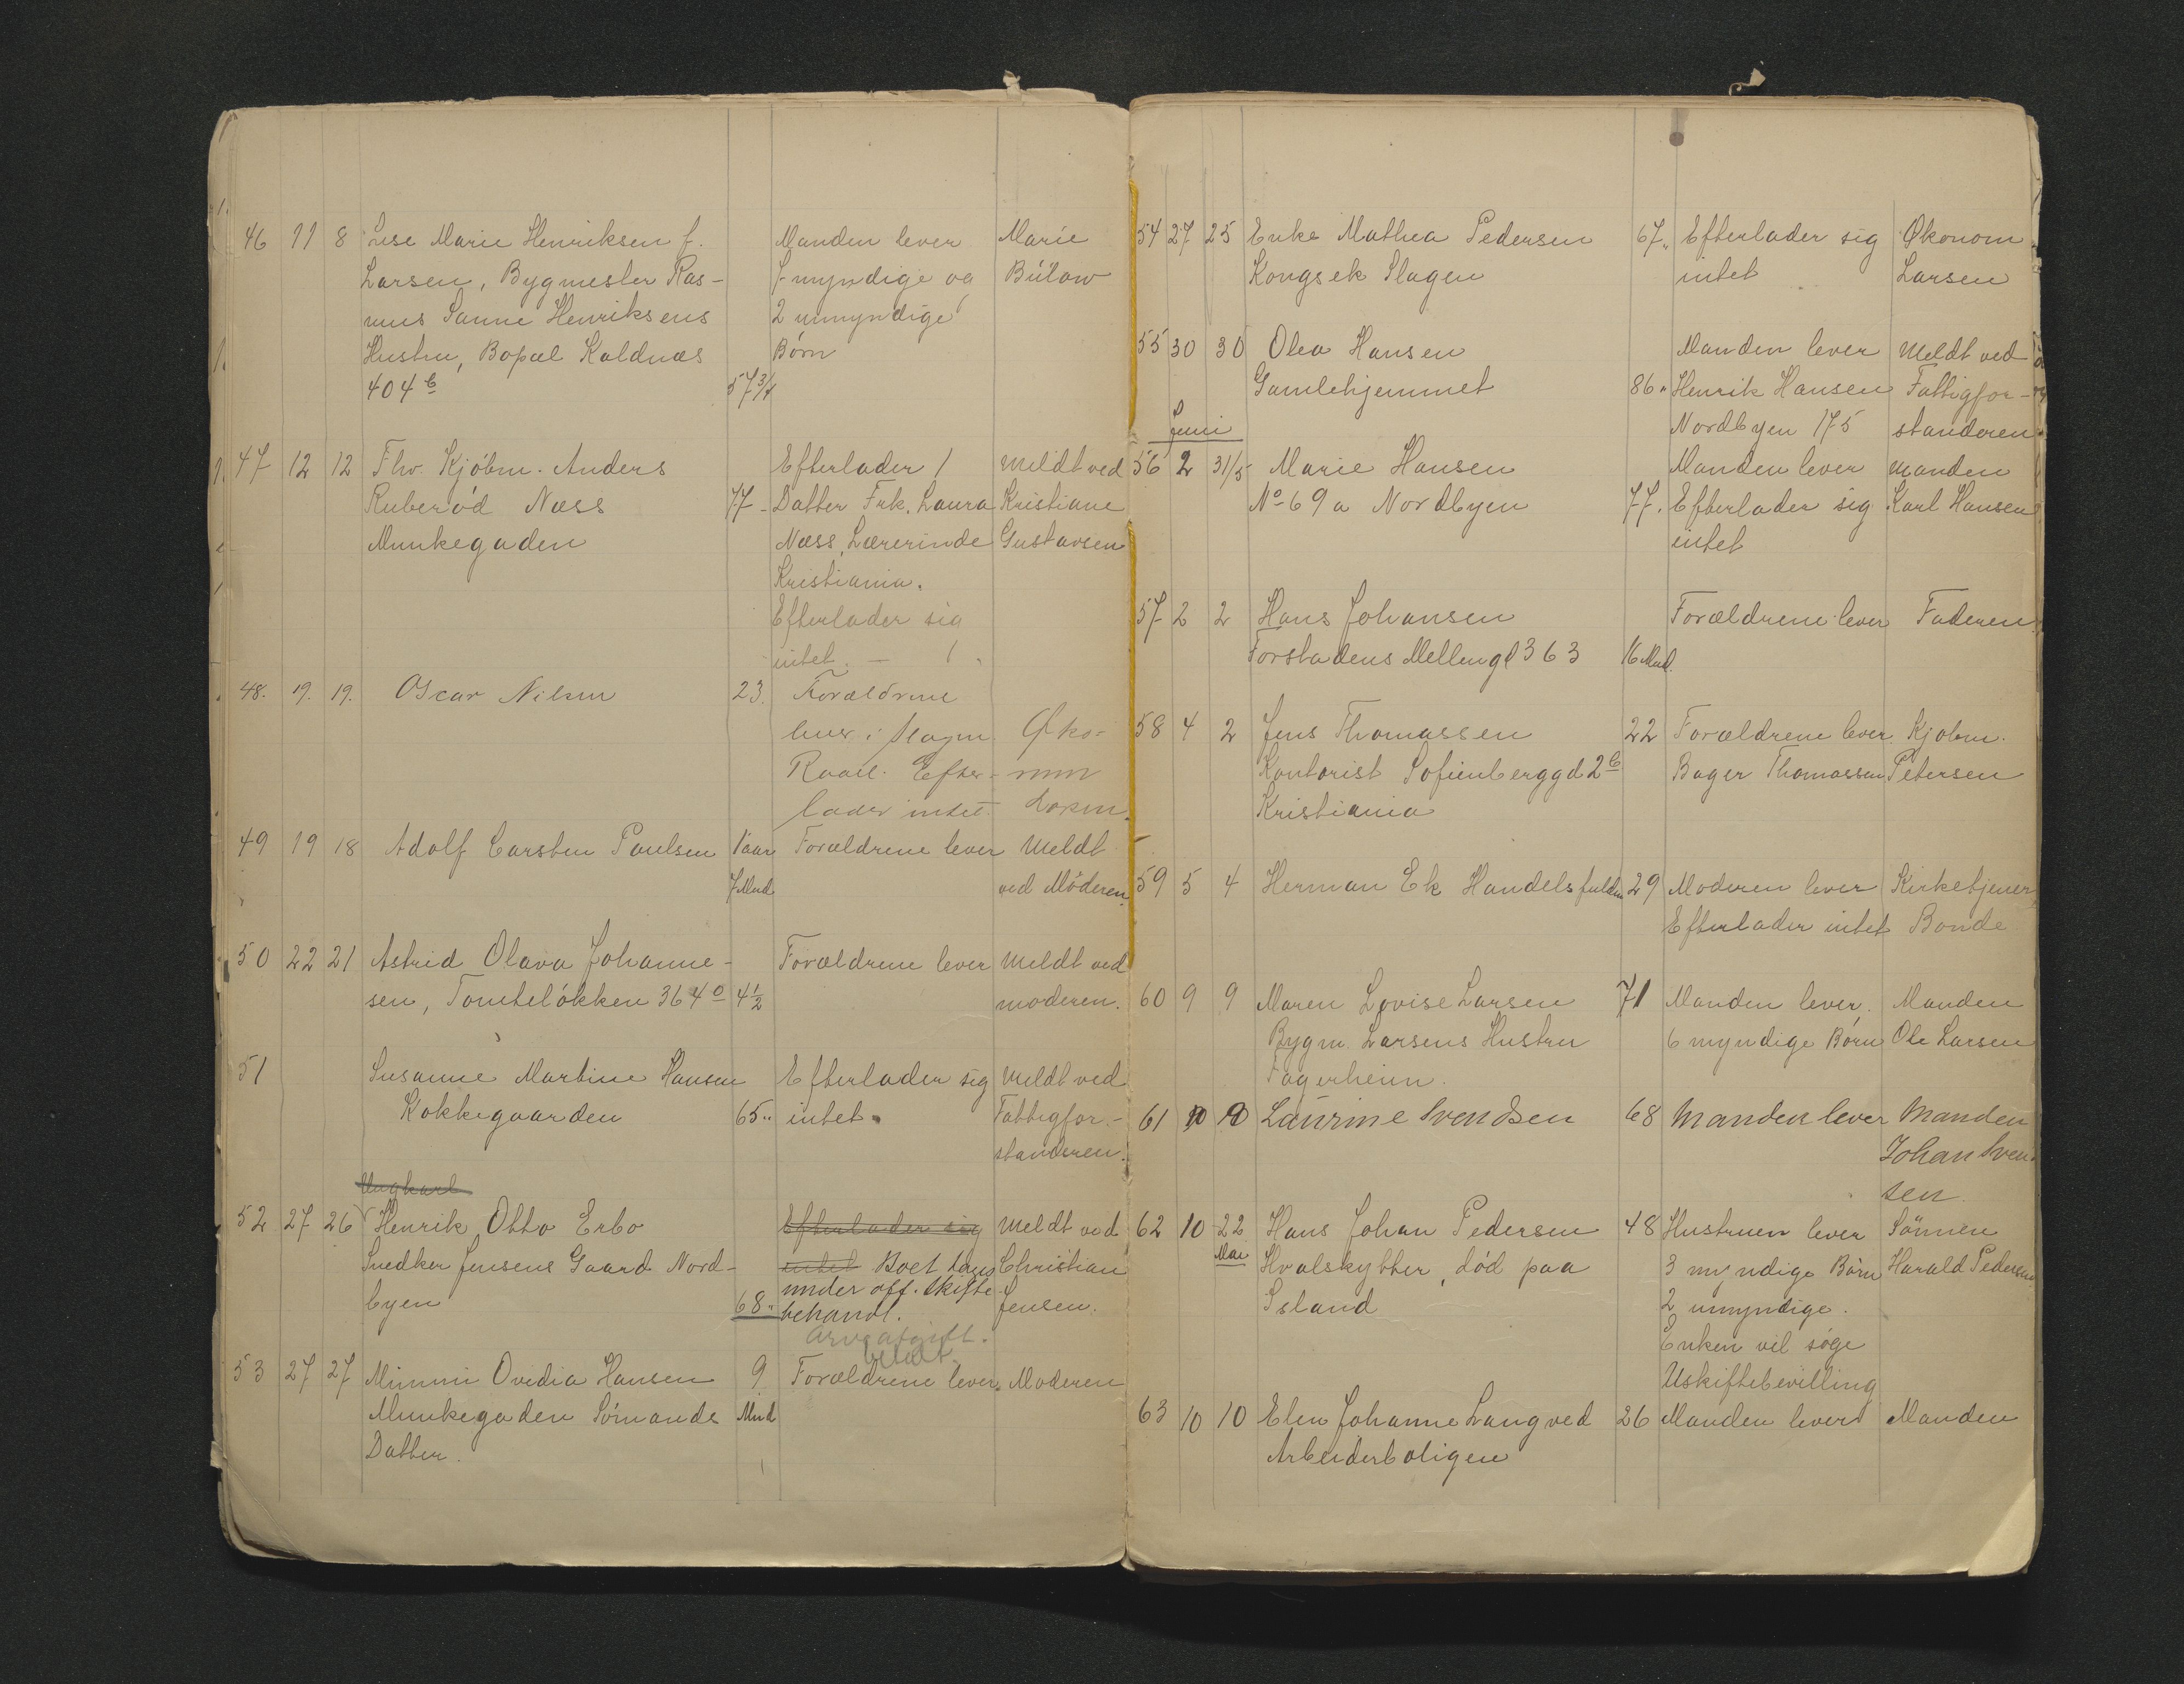 46 11 8 Lise Marie Henriksen f. Manden lever Marie
Larsen, Bygmester Ras- myndige og Bülow
mus Sanne Henriksens 2 umyndige
Hustru, Bopæl Kaldnæs Børn
404 b 57 3/4
47 12 12 Fhv. Kjöbm. Anders Efterlader 1 Meldt ved
Ruberöd Næss 77 - Datter Frk. Laura Kristiane
Munkegaden Næss, Lærerinde Gustavsen
Kristiania.
Efterlader sig
intet. —
48. 19. 19. Oscar Nilsen 23. Forældrene
lever i Slagen Øko-
Raael. Efter- nom
lader intet. Larsen.
49 19 18 Adolf Carsten Paulsen 1 aar Forældrene lever Meldt
7 Mnd ved Möderen.
50 22 21 Astrid Olava Johanne- Forældrene lever Meldt ved
sen, Tomtelökken 364 o 4 1/2 moderen.
51 Susanne Martine Hansen Efterlader sig Meldt ved
Kokkegaarden 65 " intet. Fattigfor-
standeren.
Ungkarl
52 27 26 Henrik Otto Erbo Efterlader sig Meldt ved
Snedker Jensens Gaard Nord- intet Boet tages Christian
byen 68 " under off. skifte- Jensen.
behandl.
Arveafgift.
betalt
53 27 27 Mimmi Ovidia Hansen 9 Forældrene lever. Moderen
Munkegaden Sömands Mnd
Datter.
54 27 25 Enke Mathea Pedersen 67 " Efterlader sig Økonom
Kongsek Slagen intet Larsen
55 30 30 Olea Hansen Manden lever Meldt ved
Gamlehjemmet 86 " Henrik Hansen Fattigfor-
Nordbyen 175 standeren
Juni
56 2 31/5 Marie Hansen Manden lever Manden
No 69 a Nordbyen 77. Efterlader sig Karl Hansen
intet
57 2 2 Hans Johansen Forældrene lever Faderen
Forstadens Mellemgd 363 16 Mnd.
58 4 2 Jens Thomassen 22 Forældrene lever. Kjøbm.
Kontorist Sofienberggd 2 b Bager Thomassen Petersen
Kristiania
59 5 4 Herman Ek Handelsfuldm 29 Moderen lever Kirketjener
Efterlader intet Bonde
60 9 9 Maren Lovise Larsen 71 Manden lever, Manden
Bygm. Larsens Hustru 6 myndige Börn Ole Larsen
Fagerheim.
61 10 10 Laurine Svendsen 68 Manden lever Manden
Johan Svend-
sen.
62 10 22 Hans Johan Pedersen 48 Hustruen lever Sönnen
Mai Hvalskytter, död paa 3 myndige Börn Harald Pedersen
Island 2 umyndige.
Enken vil söge
Uskiftebevilling
63 10 10 Elen Johanne Langved 26 Manden lever Manden
Arbeiderboligen